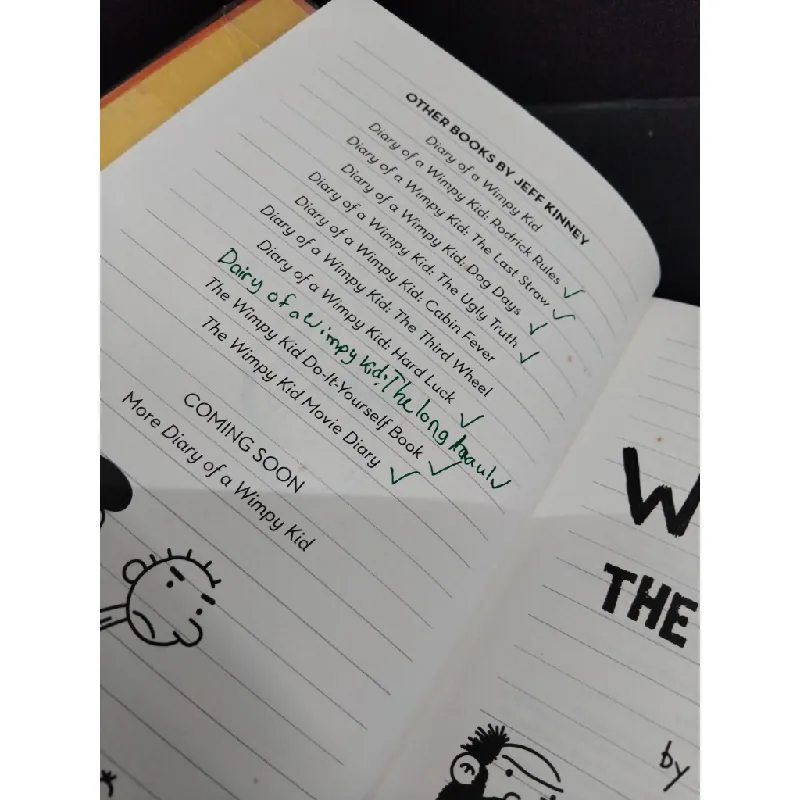 OTHER BOOKS BY JEFF KINNEY
Diary of a Wimpy Kid
Diary of a Wimpy Kid: Rodrick Rules ✓
Diary of a Wimpy Kid: The Last Straw ✓
Diary of a Wimpy Kid: Dog Days ✓
Diary of a Wimpy Kid: The Ugly Truth ✓
Diary of a Wimpy Kid: Cabin Fever
Diary of a Wimpy Kid: The Third Wheel
Diary of a Wimpy Kid: Hard Luck ✓
Dairy of a wimpy kid: The long haul ✓
The Wimpy Kid Do-It-Yourself Book ✓
The Wimpy Kid Movie Diary ✓
COMING SOON
More Diary of a Wimpy Kid
W
THE
by